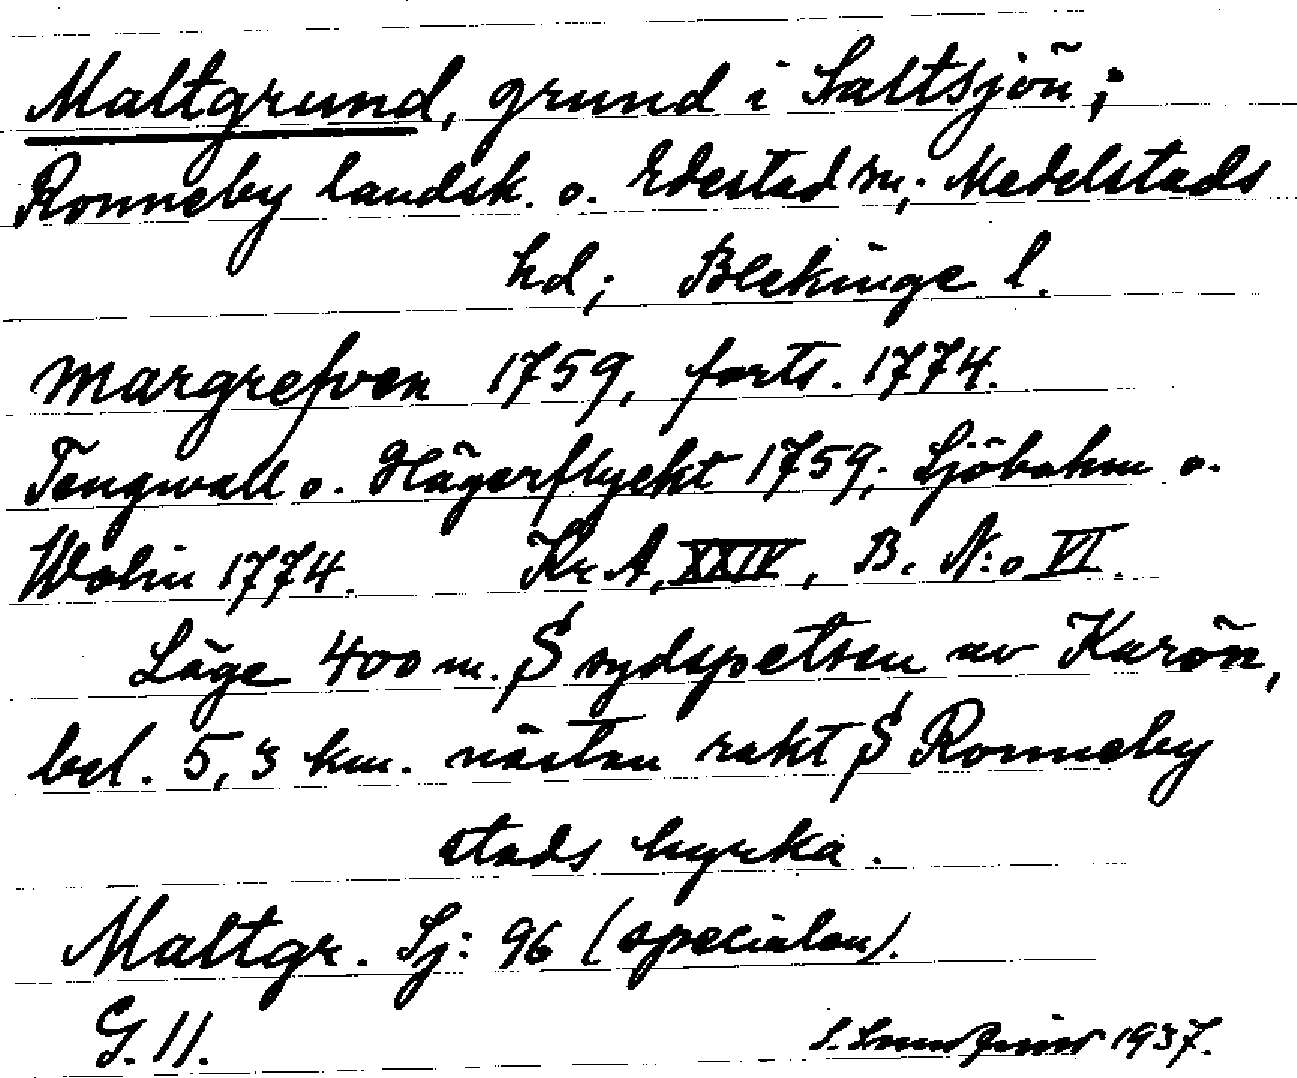 Maltgrund, grund i Saltsjön;
Ronneby landsk. o. Edestad sn; Medelstads
hd; Blekinge l.
Margrefven 1759, forts. 1774.
Tengwall o. Hägerflycht 1759; Sjöbohm o.
Wolin 1774. Kr. A. XXIV, B. N:o VI.
Läge 400 m. S sydspetsen av Karön,
bel. 5,3 km. nästan rakt S Ronneby
stads kyrka.
Maltgr. Sj: 96 (specialen).
G. 11.
1937.